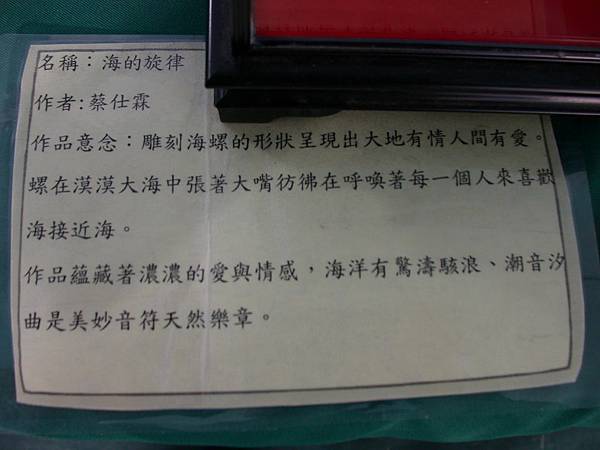 名稱：海的旋律
作者:蔡仕霖
作品意念：雕刻海螺的形狀呈現出大地有情人間有愛。
螺在漠漠大海中張著大嘴彷彿在呼喚著每一個人來喜歡
海接近海。
作品蘊藏著濃濃的愛與情感，海洋有驚濤駭浪、潮音汐
曲是美妙音符天然樂章。